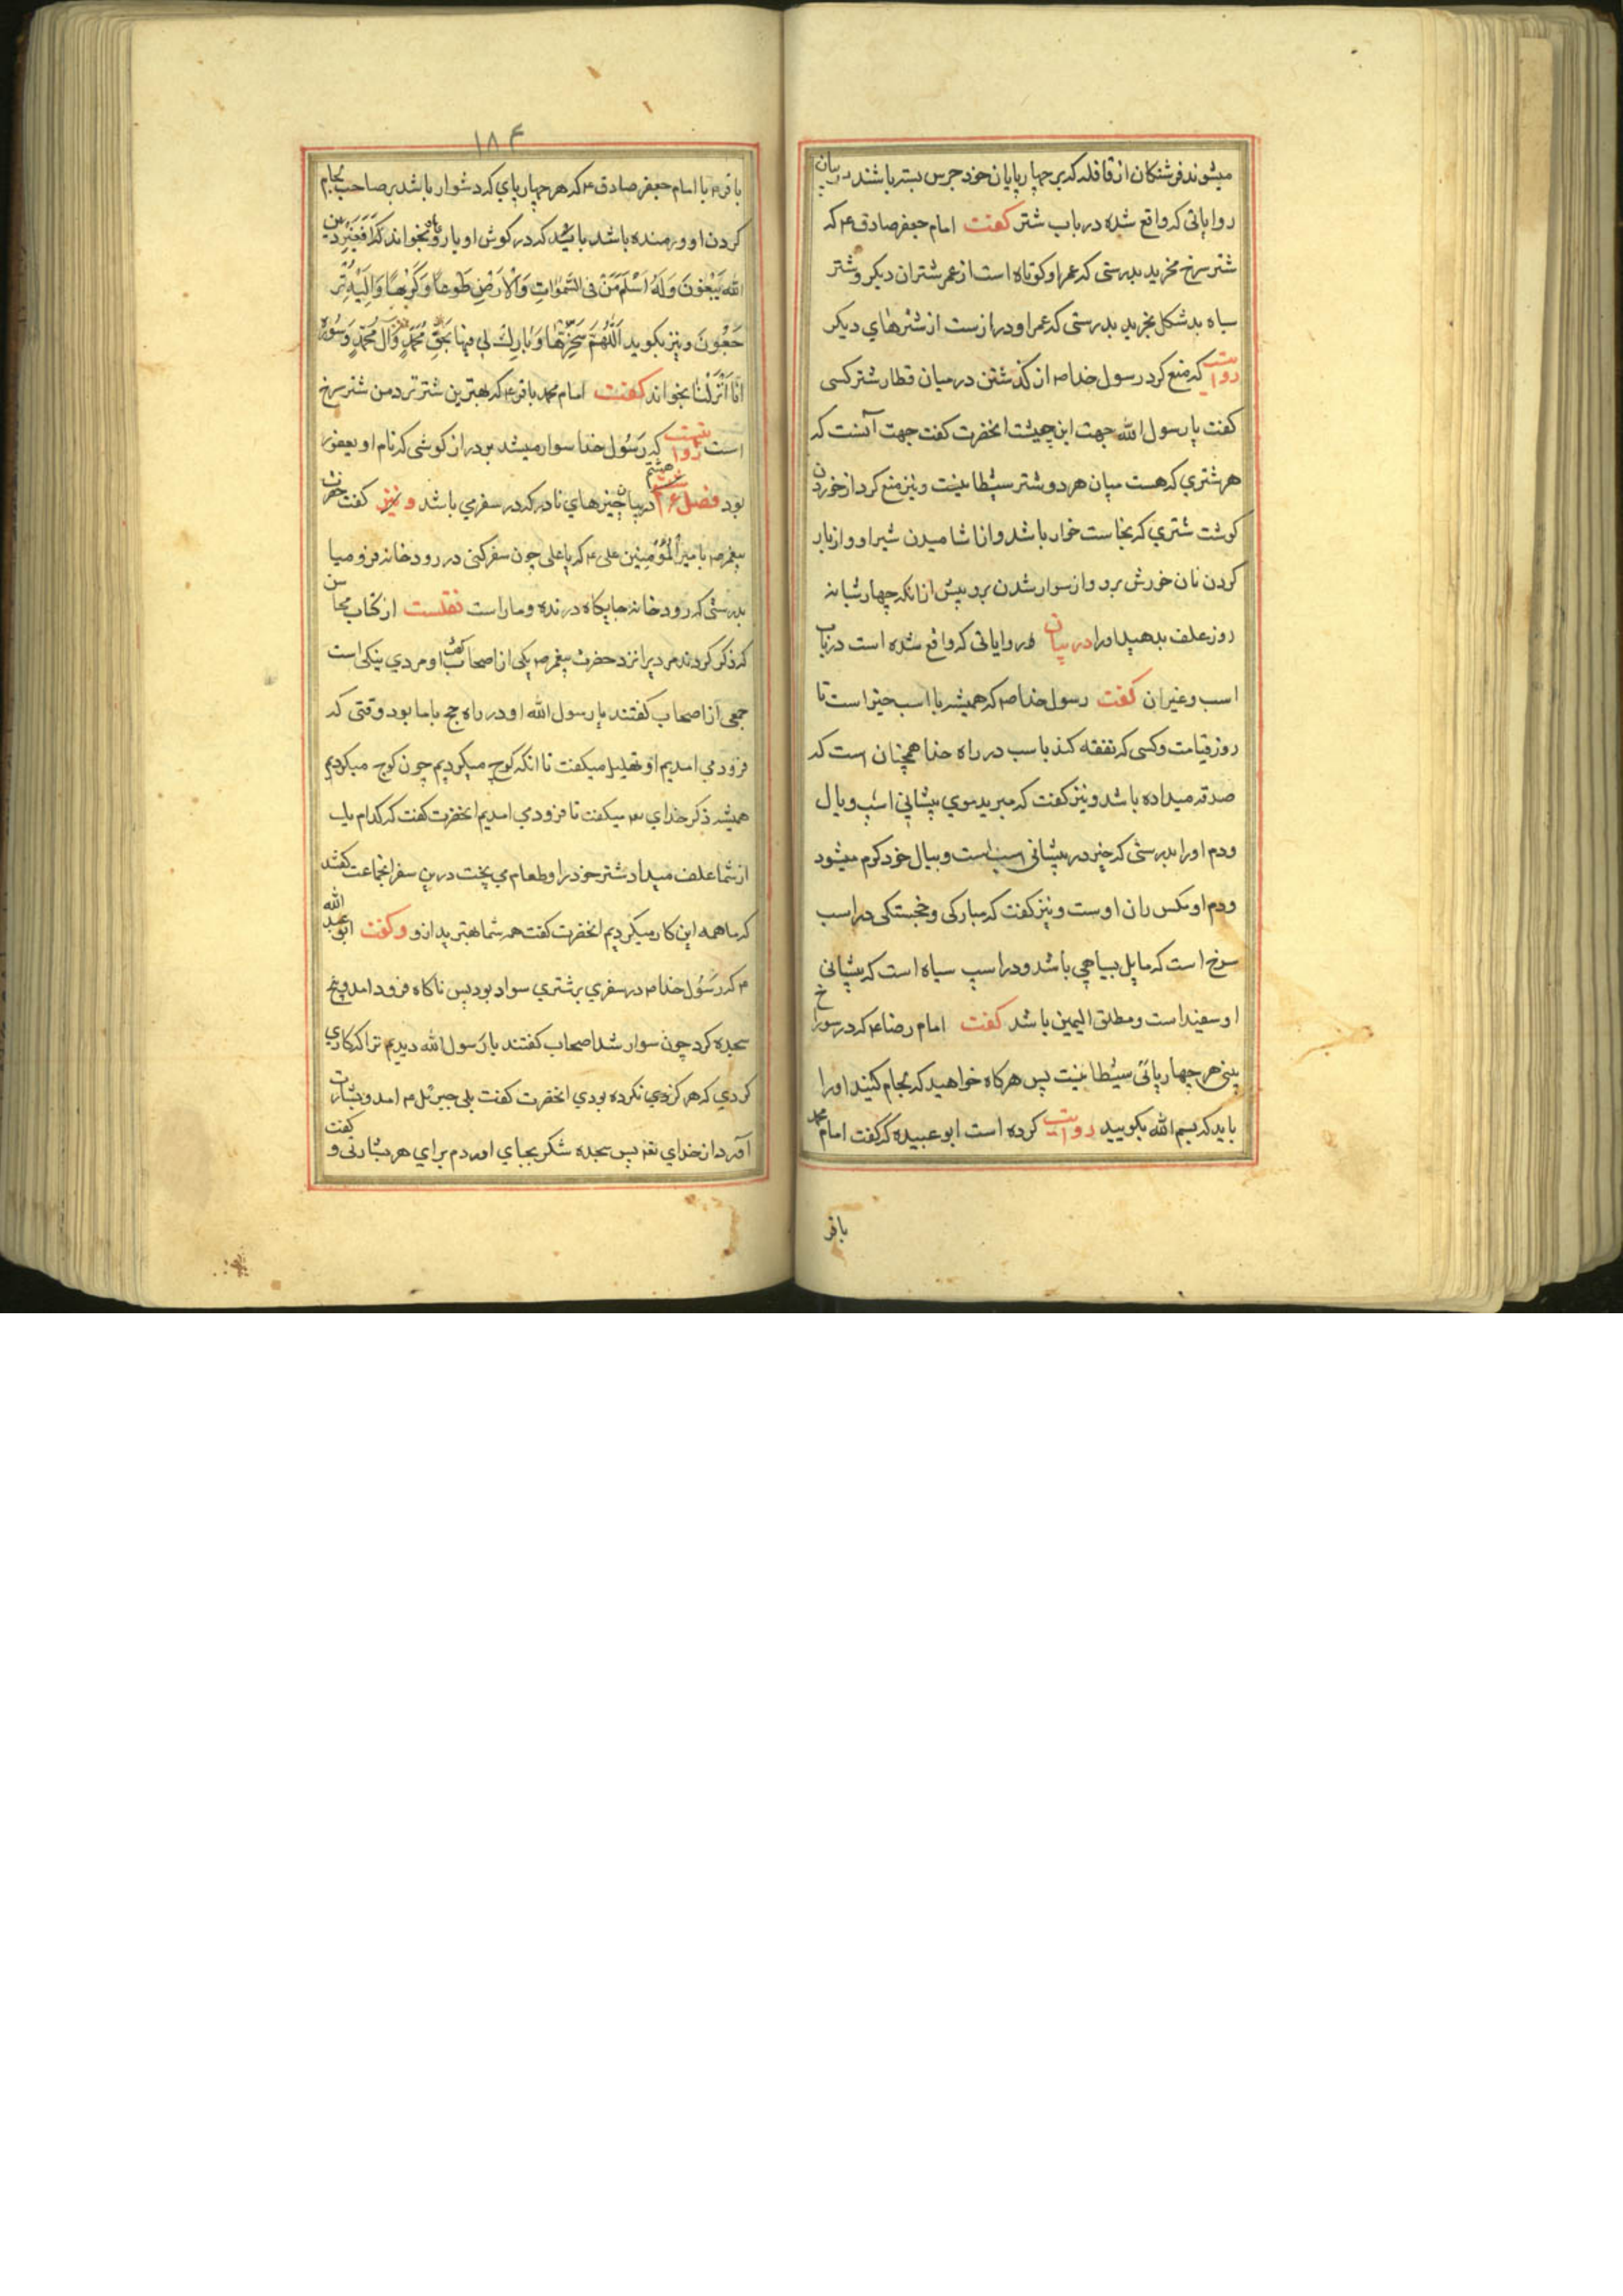 میشوند فرشتکان از قافله که بر چهار پایان خود جرس بسته باشند در بیان
روایاتی که واقع شده در باب شتر کفت امام جعفر صادق ع که
شتر سرخ مخرید بدرستی که عمر او کوتاه است از عمر شتران دیکر و شتر
سیاه بد شکل بخرید بدرستی که عمر او درازست از شترهای دیکر
روایت که منع کرد رسول خدا ص از کذشتن در میان قطار شتر کسی
کفت یا رسول الله جهت این چیست انحضرت کفت جهت آنست که
هر شتری که هست میان هر دو شتر شیطانیست و نیز منع کرد از خوردن
کوشت شتری که نجاست خوار باشد و از اشامیدن شیر او و از بار
کردن نان خورش برو و از سوار شدن برو پیش از انکه چهار شبانه
روز علف بدهید او را در بیان روایاتی که واقع شده است در باب
اسب و غیر ان کفت رسول خدا ص که همیشه با اسب خیر است تا
روز قیامت و کسی که نفقه کند باسب در راه خدا همچنان است که
صدقه میداده باشد و نیز کفت که مبرید موی پیشانی اسب و یال
و دم او را بدرستی که خیر در پیشانی اسب است و بیال خود کرم میشود
و دم او مکس ران اوست و نیز کفت که مبارکی و خجستکی در اسب
سرخ است که مایل بسیاهی باشد و در اسب سیاه است که پیشانی
او سفید است و مطلق الیمین باشد کفت امام رضا ع که در سوراخ
بینی هر چهار پائی شیطانیست پس هرکاه خواهید که لجام کنید او را
باید که بسم الله بکویید روایت کرده است ابو عبیده که کفت امام محمد
باقر
۱۸۴
باقر ع یا امام جعفر صادق ع که هر چهار پای که دشوار باشد بر صاحب لجام
کردن او و رمنده باشد باید که در کوش او یا رو باو بخواند که اَفَغَیْرَ دین
الله یَبْغُونَ وَلَهُ اَسْلَمَ مَنْ فی السَّمٰواتِ وَالْاَرْضِ طَوعاً وَکَرْهاً وَاِلَیْهِ تُرْ
جَعُونَ و نیز بکوید اَللّهُمَّ سَخِّرْها وَبارِکْ لی فیها بَحَقِّ مُحَمَّدٍ وَآلِ مُحَمَّدٍ وَ سُوره
اِنّا اَنْزَلْنا بخواند کفت امام محمد باقر ع که بهترین شتر نزد من شتر سرخ
است روایتست که رَسُول خدا سوار میشد بر دراز کوشی که نام او یعفور
بود فصل هشتم در بیان چیزهای نادر که در سفر می باشد و نیز کفت حضرت
پیغمبر ص با میر اَلْمُؤمِنین علی ع که یا علی چون سفر کنی در رود خانه فرو میا
بدرستی که رود خانه جایکاه درنده و مار است نقلست از کتاب محاسن
که ذکر کردند مردیرا نزد حضرت پیغمبر ص یکی از اصحاب کفت او مردی نیکی است
جمعی از اصحاب کفتند یا رسول الله او در راه حج با ما بود وقتی که
فرود می امدیم او تهلیل میکفت تا انکه کوچ میکردیم چون کوچ میکردیم
همیشه ذکر خدای تعه میکفت تا فرود می امدیم انحضرت کفت که کدام یک
از شما علف میداد شتر خود را و طعام می پخت درین سفر انجماعت کفتند
که ما همه این کار میکردیم انحضرت کفت همه شما بهترید ازو و کفت ابو عبد الله
ع که رَسُول خدا ص در سفری بر شتری سوار بود پس ناکاه فرود امد و پنج
سجده کرد چون سوار شد اصحاب کفتند یا رَسول الله دیدیم ترا که کاری
کردی که هرکز نکرده بودی انحضرت کفت بلی جبرئل ع امد و بشارت
آورد از خدای تعه پس سجده شکر بجای اوردم برای هر بشارتی و کفت